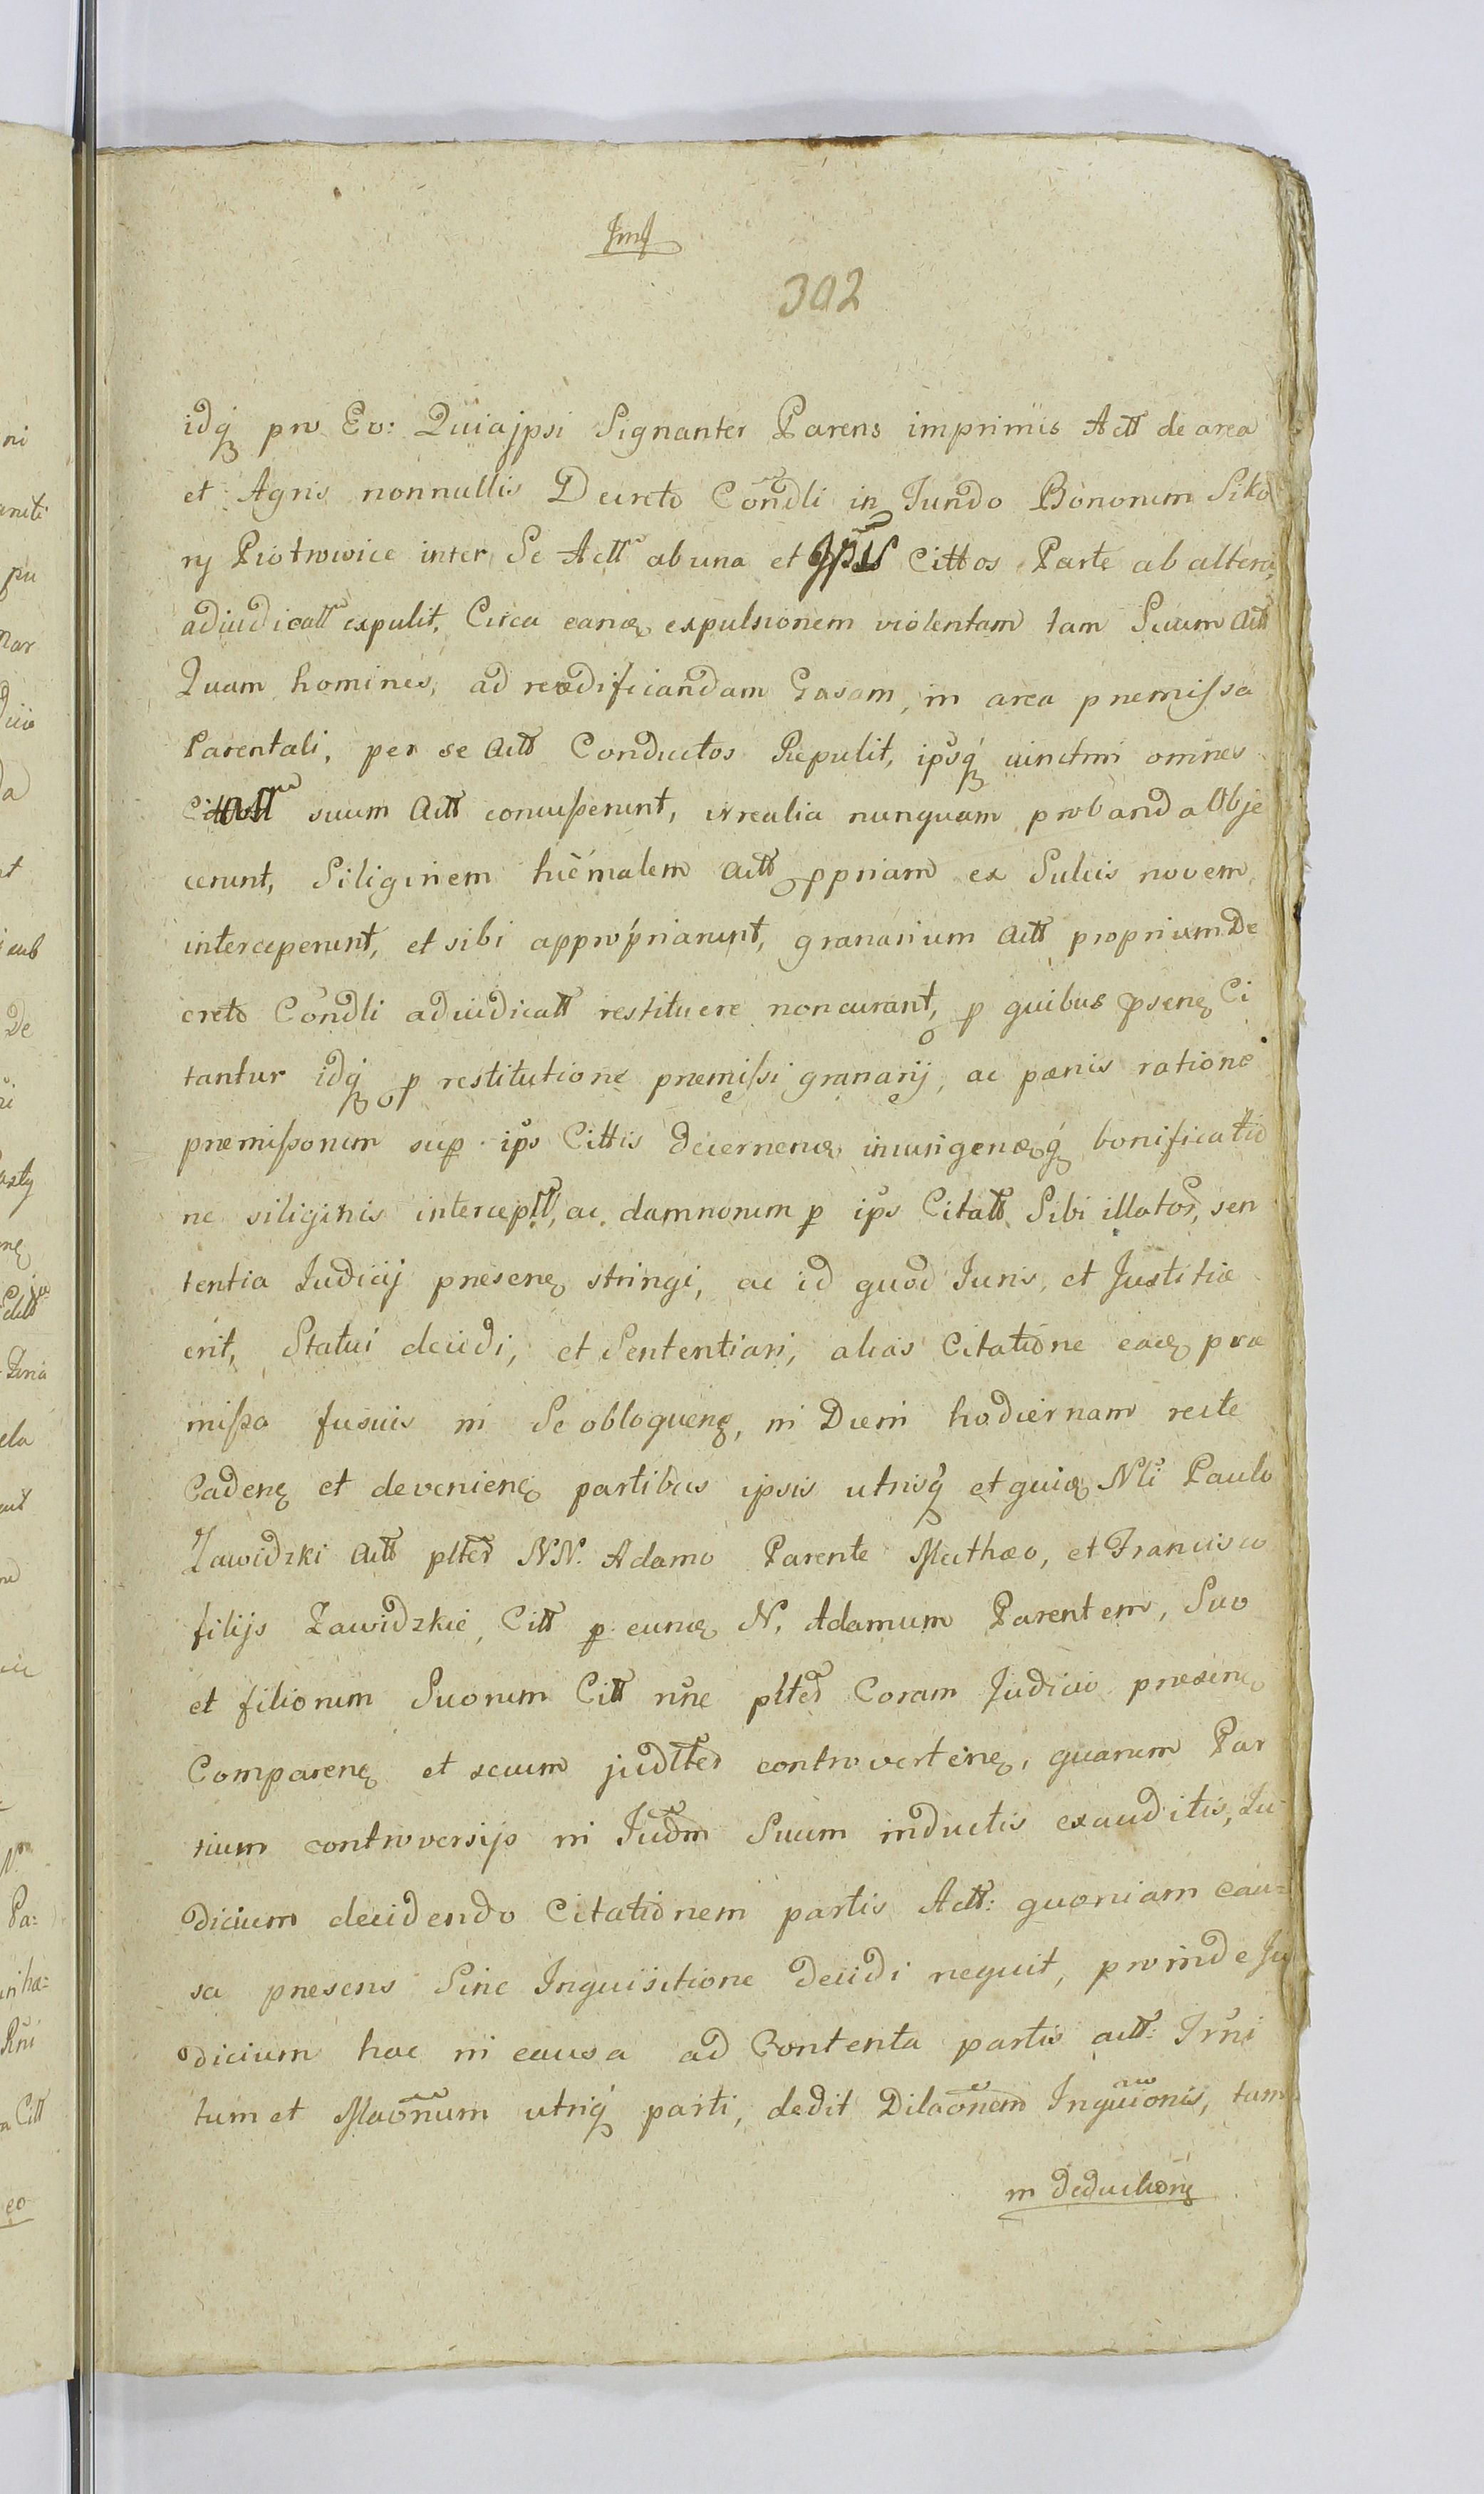 302
idq́ pro Eo: Quia jpsi Signanter Parens imprimis Actt de area
et Agris nonnullis Decreto Condli in Fundo Bonorum Siko
ry Piotrowice inter Se Actt ab una et Jpis Cittos Parte ab altera,
adiudicatt expulit, Circa eanq expulsionem violentam tam Suum Actt
Quam homines, ad reædificiandam Casam, in area præmissa
Parentali, per se Actt Conductos Repulit, ipsq́ omnes
suum Actt irrealia nunquam probanda Obje
cerunt, Siliginem hiemalem Actt ppriam ex Sulcis novem
interceperunt, et sibi appropriarunt, granarium Actt proprium De
creto Condli adiudicatt restituere non curant, p quibus psenq Ci
tantur idq́ p restitutione præmissi granarij, ac pœnis ratione
præmissorum sup ips Cittis decernenq bonificatio
ne siliginis interceptt, ac damnorum p ips Citatt Sibi illator, sen
tentia Judicij præsenq stringi, ac id quod Juris, et Justitiæ
erit, Statui decidi, et Sententiari, alias Citatione eadq præ
missa fusius in Se obloquenq, in Diem hodiernam recte
Cadenq et devenienq partibus ipsis utrisq́ et quidq Nli Paulo
Zawidzki Actt plter NN. Adamo Parente Mathæo, et Francisco
filijs Zawidzkie, Citt p eunq N. Adamum Parentem, Suo
et filiorum Suorum Citt nne plter Coram Judicio præsenq
Comparenq et secum judlter controvertenq, quarum Par
tium controversijs in Judm Suum inductis exauditis, Ju
dicium decidendo Citationem partis Actt: quoniam cau=
sa præsens Sine Inquisitione decidi nequit, proinde Ju
dicium hac in causa ad Contenta partis actt: Irni
tum et Maonum utriq́ parti, dedit Dilaonem Inquionis, tam
in deductionq